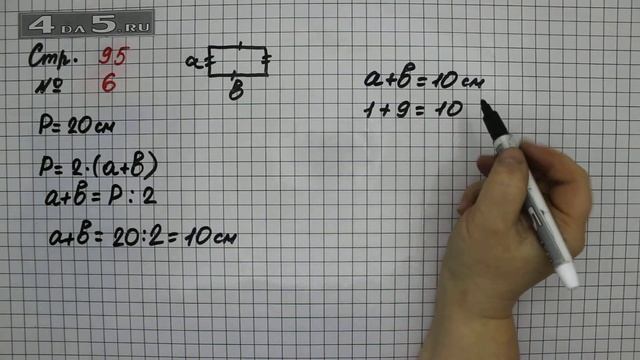 4DA5.RU
Стр. 95
№ 6
a
b
P = 20 см
P = 2·(a+b)
a+b = P : 2
a+b = 20:2 = 10 см
a+b = 10 см
1 + 9 = 10